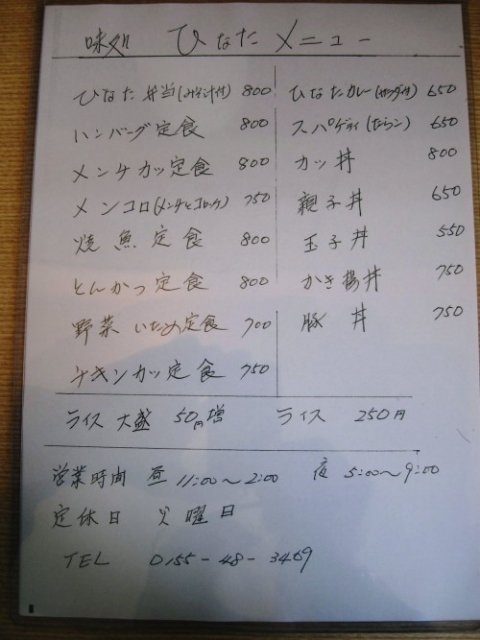 味処 ひなた メニュー
ひなた弁当(みそ汁付) 800
ハンバーグ定食 800
メンチカツ定食 800
メンコロ(メンチとコロッケ) 750
焼魚定食 800
とんかつ定食 800
野菜いため定食 700
チキンカツ定食 750
ひなたカレー(サラダ付) 650
スパゲティ(ナポリタン) 650
カツ丼 800
親子丼 650
玉子丼 550
かき揚丼 750
豚丼 750
ライス大盛 50円増 ライス 250円
営業時間 昼 11:00～2:00 夜 5:00～9:00
定休日 火曜日
TEL 0155-48-3469